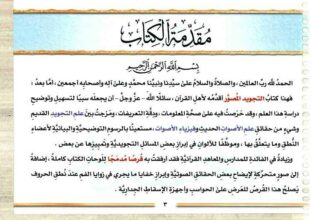 مقدمة الكتاب
بسم الله الرحمن الرحيم
الحمد لله رب العالمين، والصلاة والسلام على سيدنا ونبينا محمد وعلى آله وأصحابه أجمعين، أما بعد،
فهذا كتاب التجويد المصور أقدمه لأهل القرآن، سائلًا الله - عز وجل - أن يجعله سببًا لتسهيل وتوضيح
دراسة هذا العلم، وقد حرصت فيه على صحة المعلومات، ودقة التعريفات، ومزجت بين علم التجويد القديم
وشيء من حقائق علم الأصوات الحديث وفيزياء الأصوات، مستعينًا بالرسوم التوضيحية والبيانية لأعضاء
النطق وما يتعلق بها، وموظفًا للألوان في إبراز بعض المسائل التجويدية وتمييزها عن بعض.
وزيادة في الفائدة للمدارس والمعاهد القرآنية فقد أرفقت به قرصًا مدمجًا للوحات الكتاب كاملة، إضافة
إلى صور متحركة لإيضاح بعض الحقائق الصوتية وإبراز خفايا ما يجري في زوايا الفم عند نطق الحروف
يصلح هذا القرص للعرض على الحواسيب وأجهزة الإسقاط الجدارية.
٣